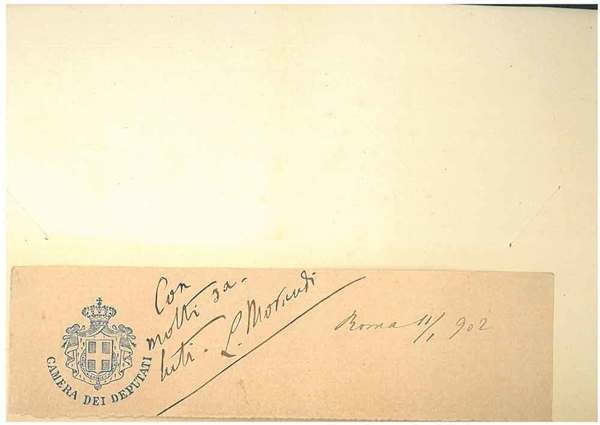 Con
molti sa-
luti. L. Morandi
Roma 11/1 902
CAMERA DEI DEPUTATI